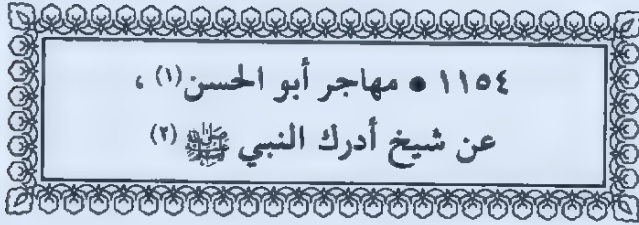 ١١٥٤ • مهاجر أبو الحسن (١) ،
عن شيخ أدرك النبي ﷺ (٢)